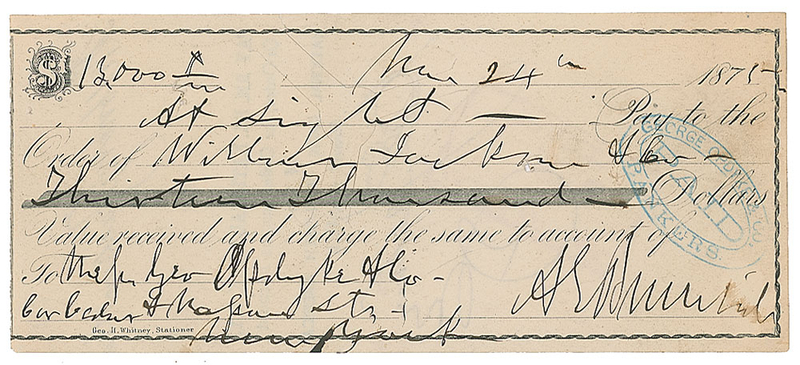 $ 13,000 24th 1875
At sight — Pay to the
Order of William Jackson & Co —
Thirteen Thousand — Dollars
Value received and charge the same to account of
To Geo Opdyke & Co -
A E Burnside
Cor Cedar & Nassau Sts -
New York
Geo. H. Whitney, Stationer
GEORGE OPDYKE & CO.
PAID
BANKERS.